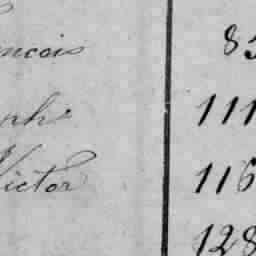 ncois 85
ph 111
Victor 116
128